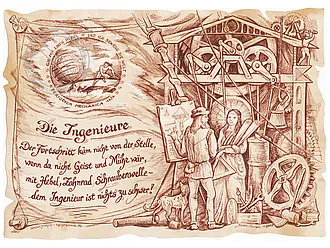 Die Ingenieure
Der Fortschritt käm nicht von der Stelle,
wenn da nicht Geist und Mühe wär,
mit Hebel, Zahnrad Schraubenwelle -
dem Ingenieur ist nichts zu schwer!